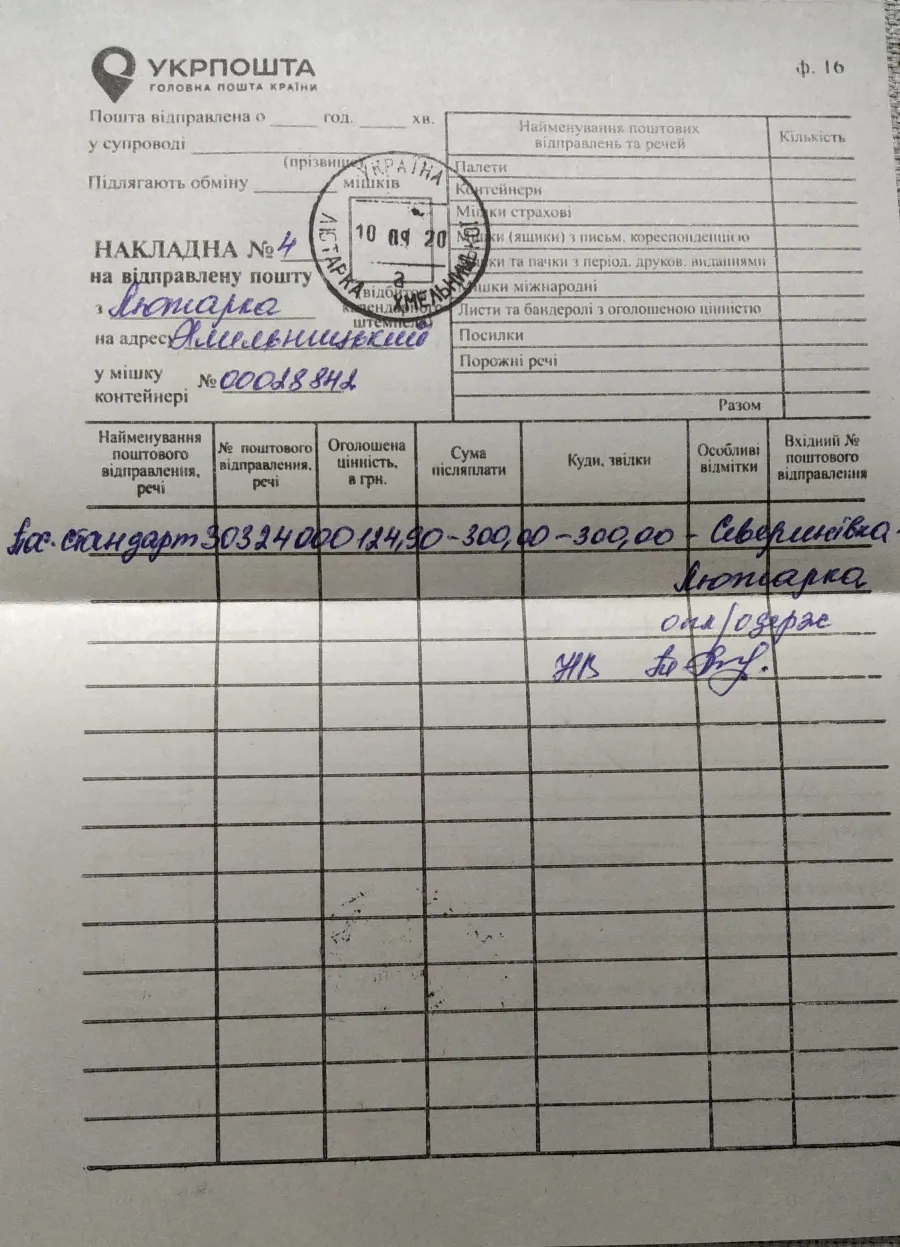 УКРПОШТА
ГОЛОВНА ПОШТА КРАЇНИ
ф. 16
Пошта відправлена о ____ год. ____ хв.
у супроводі
(прізвище)
Підлягають обміну ____ мішків
УКРАЇНА
10 09 20
а
ЛЮТАРКА ХМЕЛЬНИЦЬКОЇ
НАКЛАДНА №4
на відправлену пошту
(відбиток
календарного
штемпеля)
з Лютарка
на адресу Хмельницький
у мішку
контейнері
№00028842
Найменування поштових
відправлень та речей
Кількість
Палети
Контейнери
Мішки страхові
Мішки (ящики) з письм. кореспонденцією
Мішки та пачки з період. друков. виданнями
Мішки міжнародні
Листи та бандеролі з оголошеною цінністю
Посилки
Порожні речі
Разом
Найменування
поштового
відправлення,
речі
№ поштового
відправлення,
речі
Оголошена
цінність,
в грн.
Сума
післяплати
Куди, звідки
Особливі
відмітки
Вхідний №
поштового
відправлення
Пос. стандарт 3032400012490 - 300,00 - 300,00 - Северинівка -
Лютарка
опл/одерж
НВ